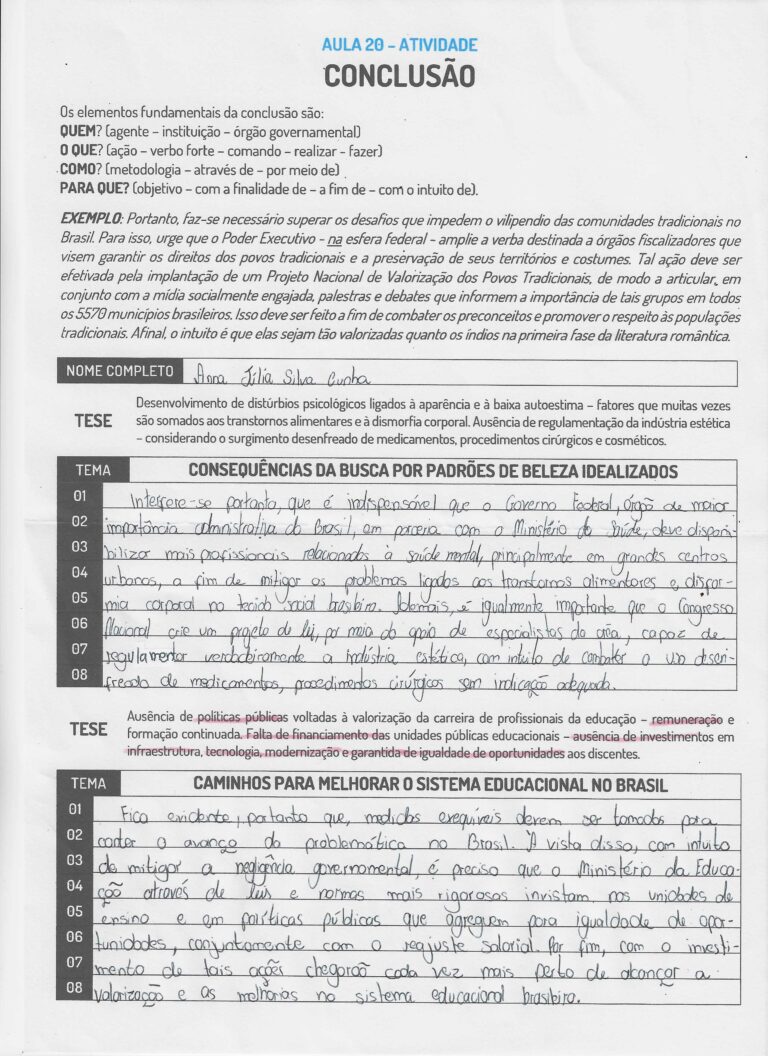 AULA 20 – ATIVIDADE
CONCLUSÃO
Os elementos fundamentais da conclusão são:
QUEM? (agente – instituição – órgão governamental)
O QUE? (ação – verbo forte – comando – realizar - fazer)
COMO? (metodologia – através de – por meio de)
PARA QUE? (objetivo – com a finalidade de – a fim de – com o intuito de).
EXEMPLO: Portanto, faz-se necessário superar os desafios que impedem o vilipendio das comunidades tradicionais no
Brasil. Para isso, urge que o Poder Executivo - na esfera federal - amplie a verba destinada a órgãos fiscalizadores que
visem garantir os direitos dos povos tradicionais e a preservação de seus territórios e costumes. Tal ação deve ser
efetivada pela implantação de um Projeto Nacional de Valorização dos Povos Tradicionais, de modo a articular, em
conjunto com a mídia socialmente engajada, palestras e debates que informem a importância de tais grupos em todos
os 5570 municípios brasileiros. Isso deve ser feito a fim de combater os preconceitos e promover o respeito às populações
tradicionais. Afinal, o intuito é que elas sejam tão valorizadas quanto os índios na primeira fase da literatura romântica.
NOME COMPLETO Anna Júlia Silva Cunha
TESE
Desenvolvimento de distúrbios psicológicos ligados à aparência e à baixa autoestima – fatores que muitas vezes
são somados aos transtornos alimentares e à dismorfia corporal. Ausência de regulamentação da indústria estética
– considerando o surgimento desenfreado de medicamentos, procedimentos cirúrgicos e cosméticos.
TEMA CONSEQUÊNCIAS DA BUSCA POR PADRÕES DE BELEZA IDEALIZADOS
01 Interfere-se portanto, que é indispensável que o Governo Federal, órgão de maior
02 importância administrativa do Brasil, em parceria com o Ministério da Saúde, deve disponi-
03 bilizar mais profissionais relacionados à saúde mental, principalmente em grandes centros
04 urbanos, a fim de mitigar os problemas ligados aos transtornos alimentares e, disfor-
05 mia corporal no tecido social brasileiro. Ademais, é igualmente importante que o Congresso
06 Nacional crie um projeto de lei, por meio do apoio de especialistas da área, capaz de
07 regulamentar verdadeiramente a indústria estética, com intuito de combater o uso desen-
08 freado de medicamentos, procedimentos cirúrgicos sem indicação adequada.
TESE
Ausência de políticas públicas voltadas à valorização da carreira de profissionais da educação – remuneração e
formação continuada. Falta de financiamento das unidades públicas educacionais – ausência de investimentos em
infraestrutura, tecnologia, modernização e garantida de igualdade de oportunidades aos discentes.
TEMA CAMINHOS PARA MELHORAR O SISTEMA EDUCACIONAL NO BRASIL
01 Fica evidente, portanto que, medidas exequíveis devem ser tomadas para
02 conter o avanço da problemática no Brasil. À vista disso, com intuito
03 de mitigar a negligência governamental, é preciso que o Ministério da Educa-
04 ção através de leis e normas mais rigorosas invistam nas unidades de
05 ensino e em políticas públicas que agreguem para igualdade de opor-
06 tunidades, conjuntamente com o reajuste salarial. Por fim, com o investi-
07 mento de tais ações chegarão cada vez mais perto de alcançar a
08 valorização e as melhorias no sistema educacional brasileiro.